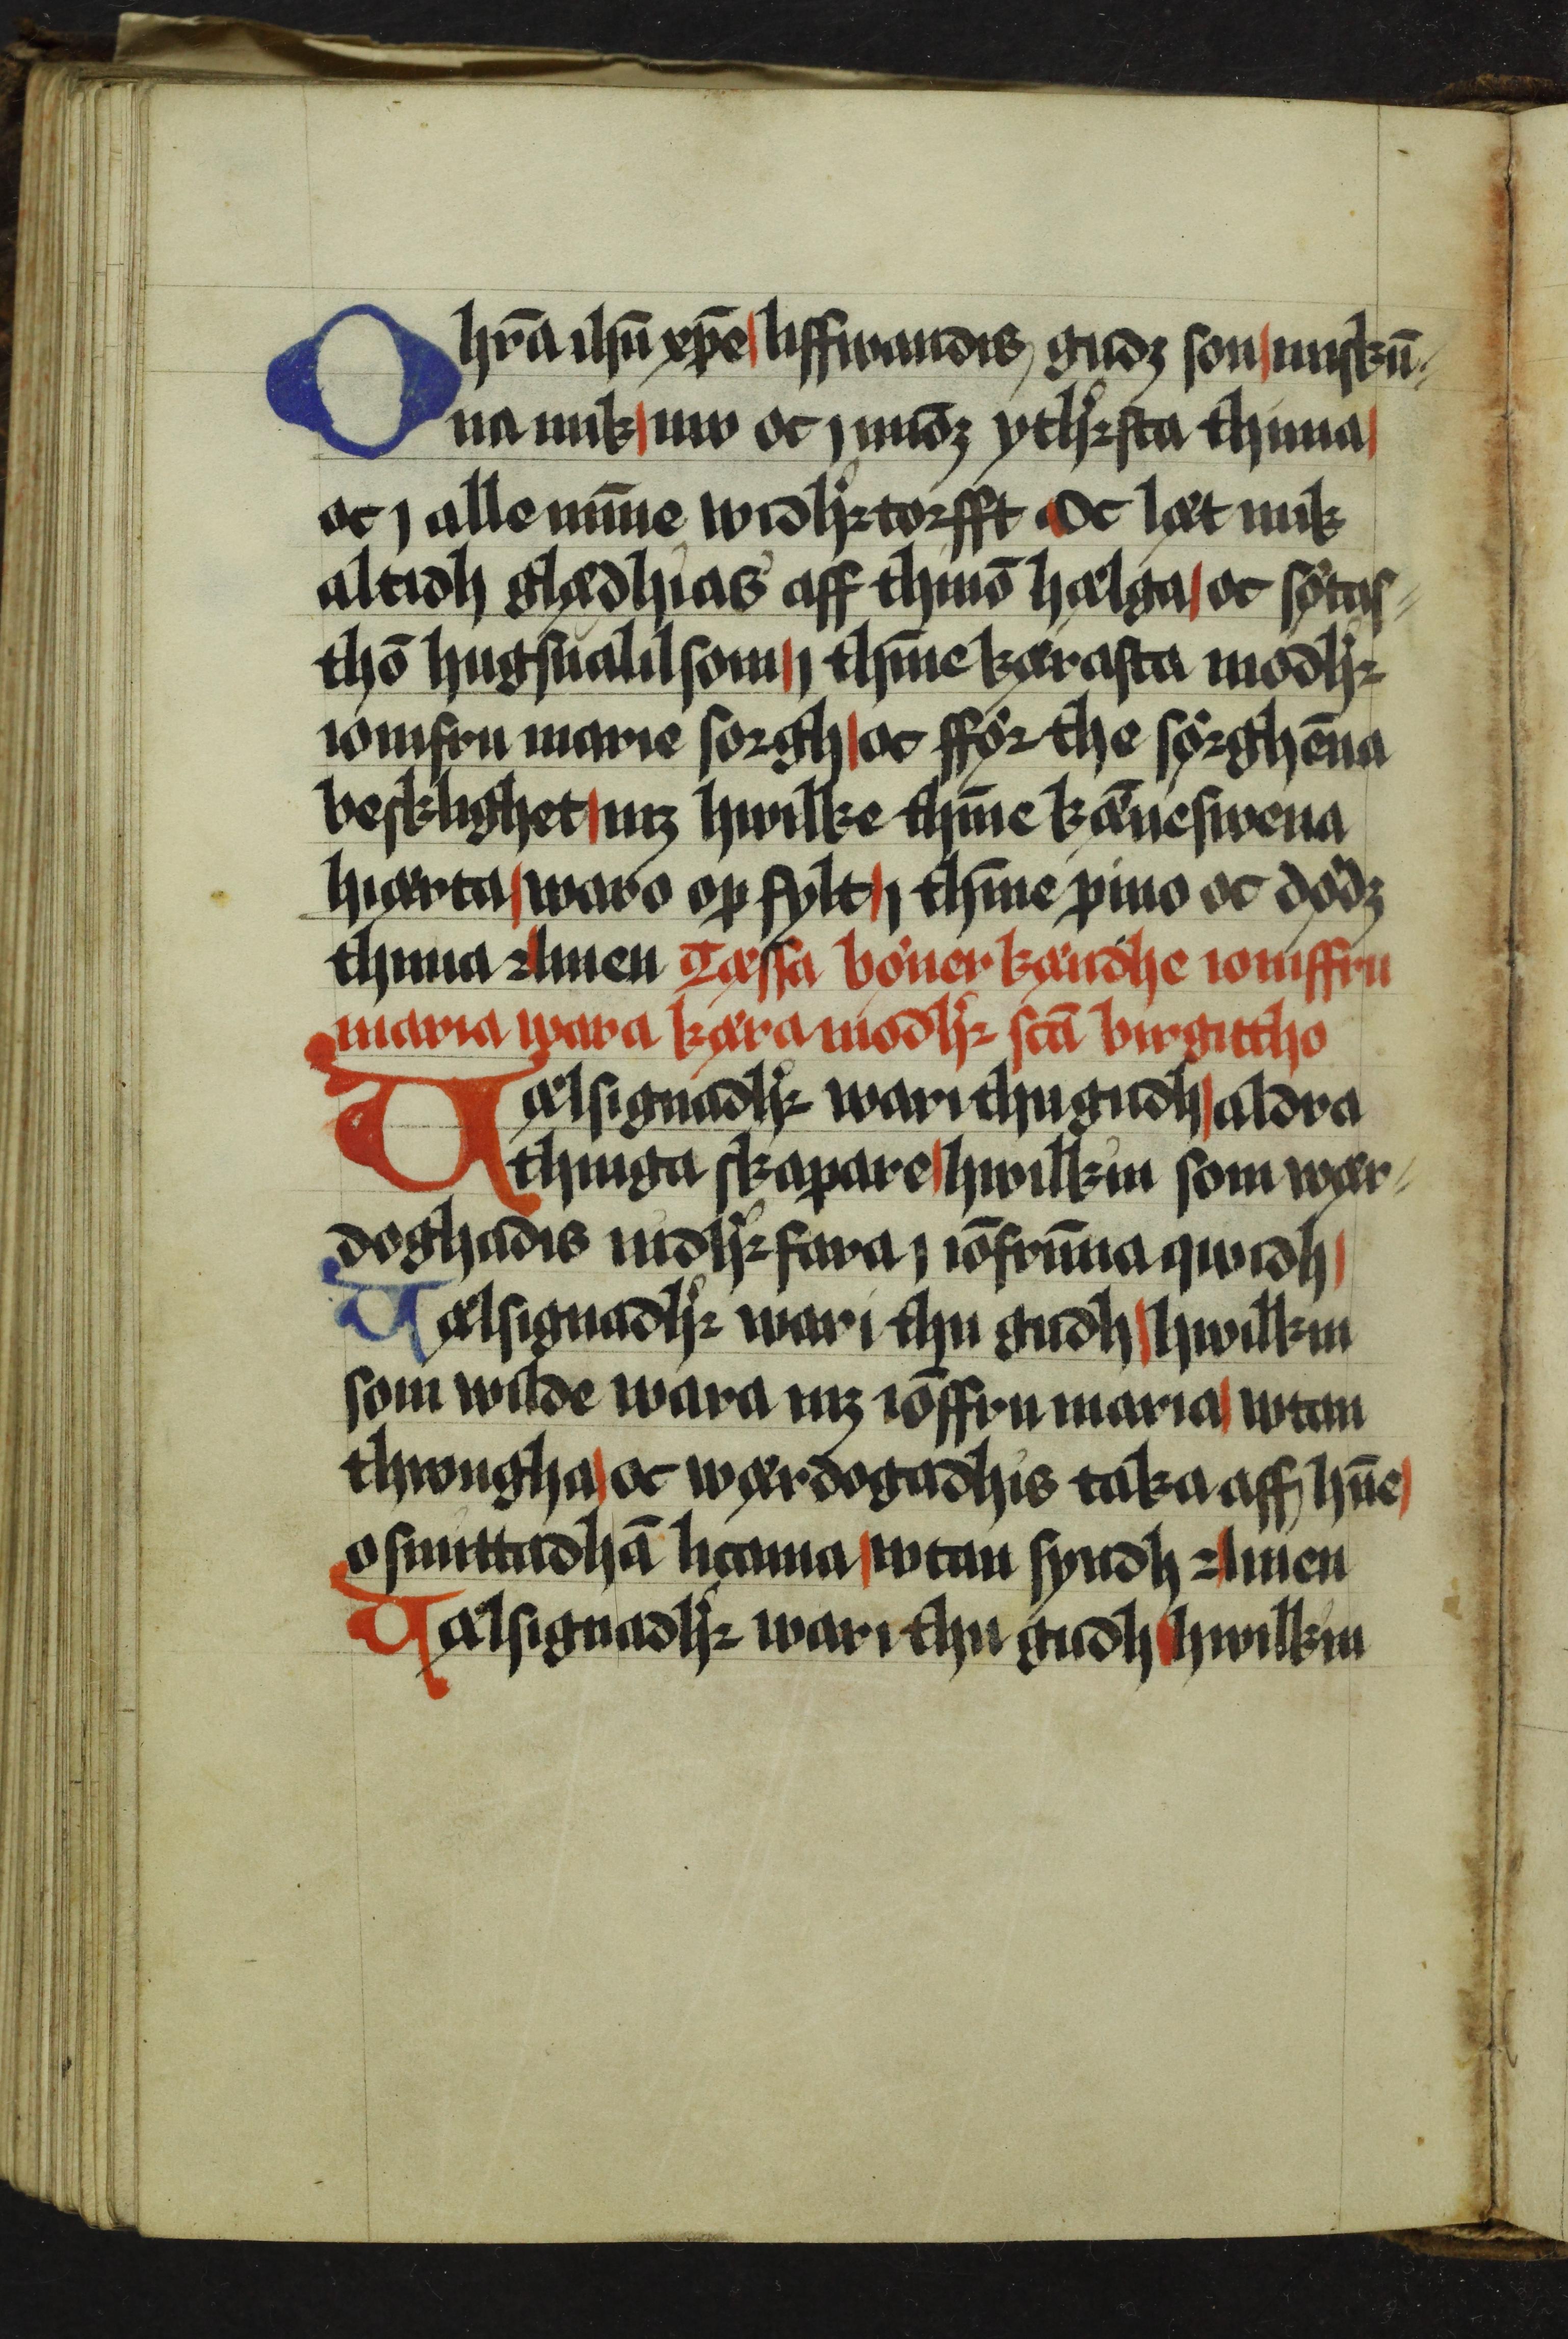 O hr̄a ihū xp̄e liffwandis gudz son miskū-
na mik nw oc j miōz ytḥersta thima
oc j alle mīne widḥertorfft Oc læt mik
altidh glædhias aff thinō hælga oc sötas-
thō hugsualil som j thīne kærasta modḥer
iomfru marie sorgh oc fför the sörghēna
besklighet mz hwilke thīne kæ̅neswena
hiærta waro op fylt j thīne pino oc dödz
thima Amen Tæssa böner kændhe iomffru
maria wara kæra modḥer scā birgittho
Uælsignadḥer wari thu gudh aldra
thinga skapare hwilkin som wær-
doghadis nidḥerfara j iōfrūna qwidh
Uælsignadḥer wari thu gudh hwilkin
som wilde wara mz iōffru maria wtan
thwngha oc wærdogadhis taka aff hn̄e
osmittadhā licama wtan syndh Amen
Uælsignadḥer wari thu gudh hwilkin